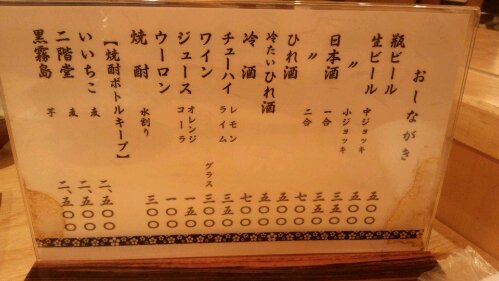 おしながき
瓶ビール 五〇〇
生ビール 中ジョッキ 五〇〇
〃 小ジョッキ 三五〇
日本酒 一合 三五〇
〃 二合 七〇〇
ひれ酒 五〇〇
冷たいひれ酒 五〇〇
冷酒 七〇〇
チューハイ レモン ライム 三五〇
ワイン グラス 三〇〇
ジュース オレンジ コーラ 一五〇
ウーロン 一〇〇
焼酎 水割り 三〇〇
【焼酎ボトルキープ】
いいちこ 麦 二、五〇〇
二階堂 麦 二、五〇〇
黒霧島 芋 二、五〇〇